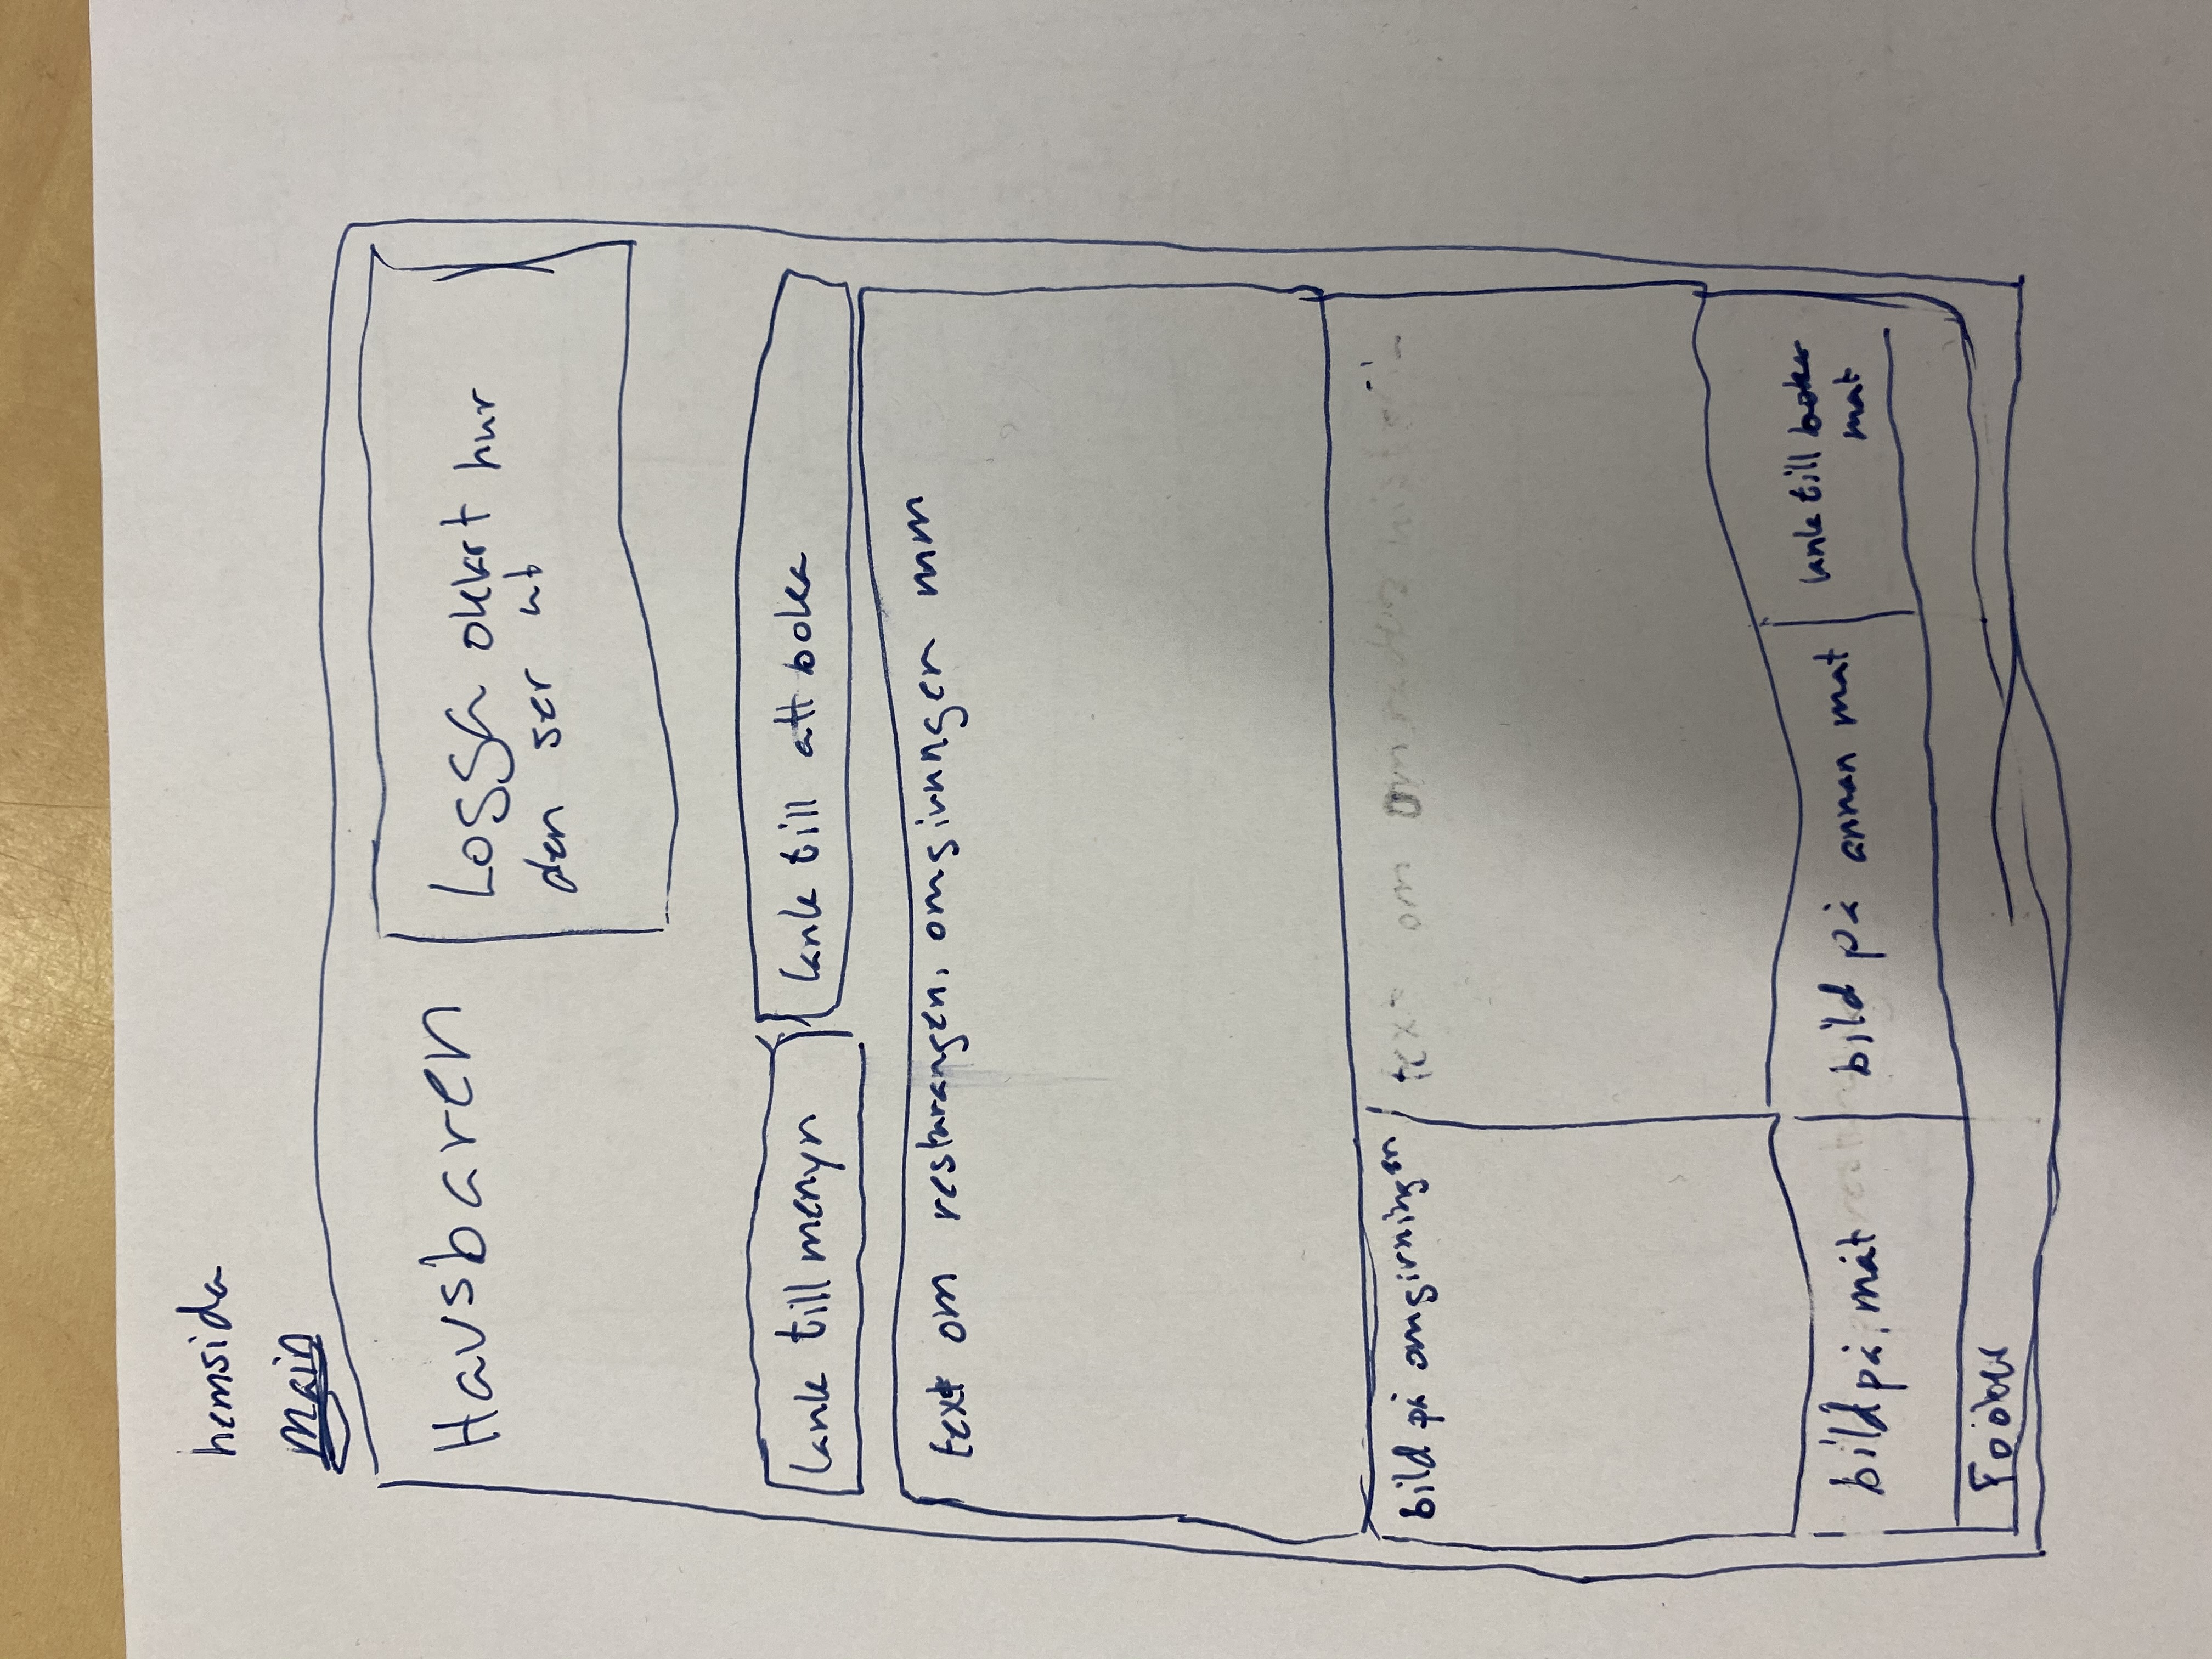 hemsida
main
Havsbaren
Logga oklart hur
den ser ut
lank till menyn
lank till att boka
text om resturangen, omgivnngen mm
bild på omgivningen
text om
bild på mat
bild på annan mat
lank till boka
mat
Foober